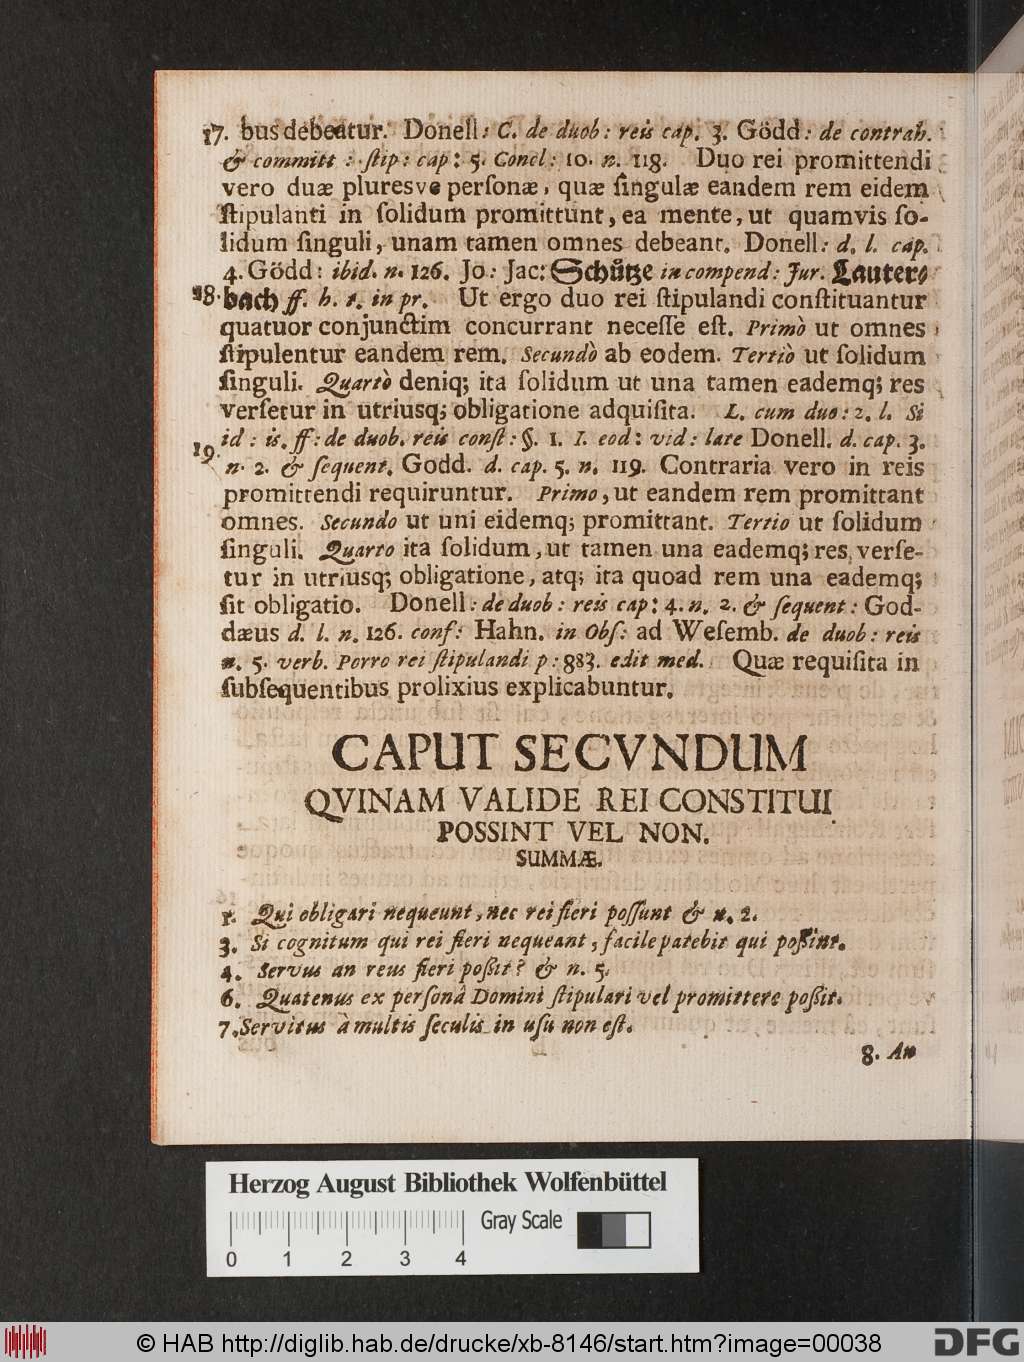 17. bus debeatur. Donell: C. de duob: reis cap. 3. Gödd: de contrah.
& committ: ſtip: cap: 5. Concl: 10. n. 118. Duo rei promittendi
vero duæ pluresve perſonæ, quæ ſingulæ eandem rem eidem
ſtipulanti in ſolidum promittunt, ea mente, ut quamvis ſo-
lidum ſinguli, unam tamen omnes debeant. Donell: d. l. cap.
4. Gödd: ibid. n. 126. Jo: Jac: Schůtze in compend: Jur. Lauter-
18. bach ff. h. t. in pr. Ut ergo duo rei ſtipulandi conſtituantur
quatuor conjunctim concurrant neceſſe eſt. Primò ut omnes
ſtipulentur eandem rem. Secundò ab eodem. Tertiò ut ſolidum
ſinguli. Quartò deniq; ita ſolidum ut una tamen eademq; res
verſetur in utriusq; obligatione adquiſita. L. cum duo: 2. l. Si
id: is. ff: de duob. reis conſt: §. 1. I. eod: vid: late Donell. d. cap. 3.
19. n. 2. & ſequent. Godd. d. cap. 5. n. 119. Contraria vero in reis
promittendi requiruntur. Primo, ut eandem rem promittant
omnes. Secundo ut uni eidemq; promittant. Tertio ut ſolidum
ſinguli. Quarto ita ſolidum, ut tamen una eademq; res, verſe-
tur in utriusq; obligatione, atq; ita quoad rem una eademq;
ſit obligatio. Donell: de duob: reis cap: 4. n. 2. & ſequent: God-
dæus d. l. n. 126. conf: Hahn. in Obſ: ad Weſemb. de duob: reis
n. 5. verb. Porro rei ſtipulandi p: 983. edit med. Quæ requiſita in
ſubſequentibus prolixius explicabuntur.
CAPUT SECVNDUM
QVINAM VALIDE REI CONSTITUI
POSSINT VEL NON.
SUMMÆ.
1. Qui obligari nequeunt, nec rei fieri poſſunt & n. 2.
3. Si cognitum qui rei fieri nequeant, facile patebit qui poßint.
4. Servus an reus fieri poßit? & n. 5.
6. Quatenus ex perſonâ Domini ſtipulari vel promittere poßit.
7. Servitus à multis ſeculis in uſu non eſt.
8. An
Herzog August Bibliothek Wolfenbüttel
Gray Scale
0 1 2 3 4
© HAB http://diglib.hab.de/drucke/xb-8146/start.htm?image=00038
DFG